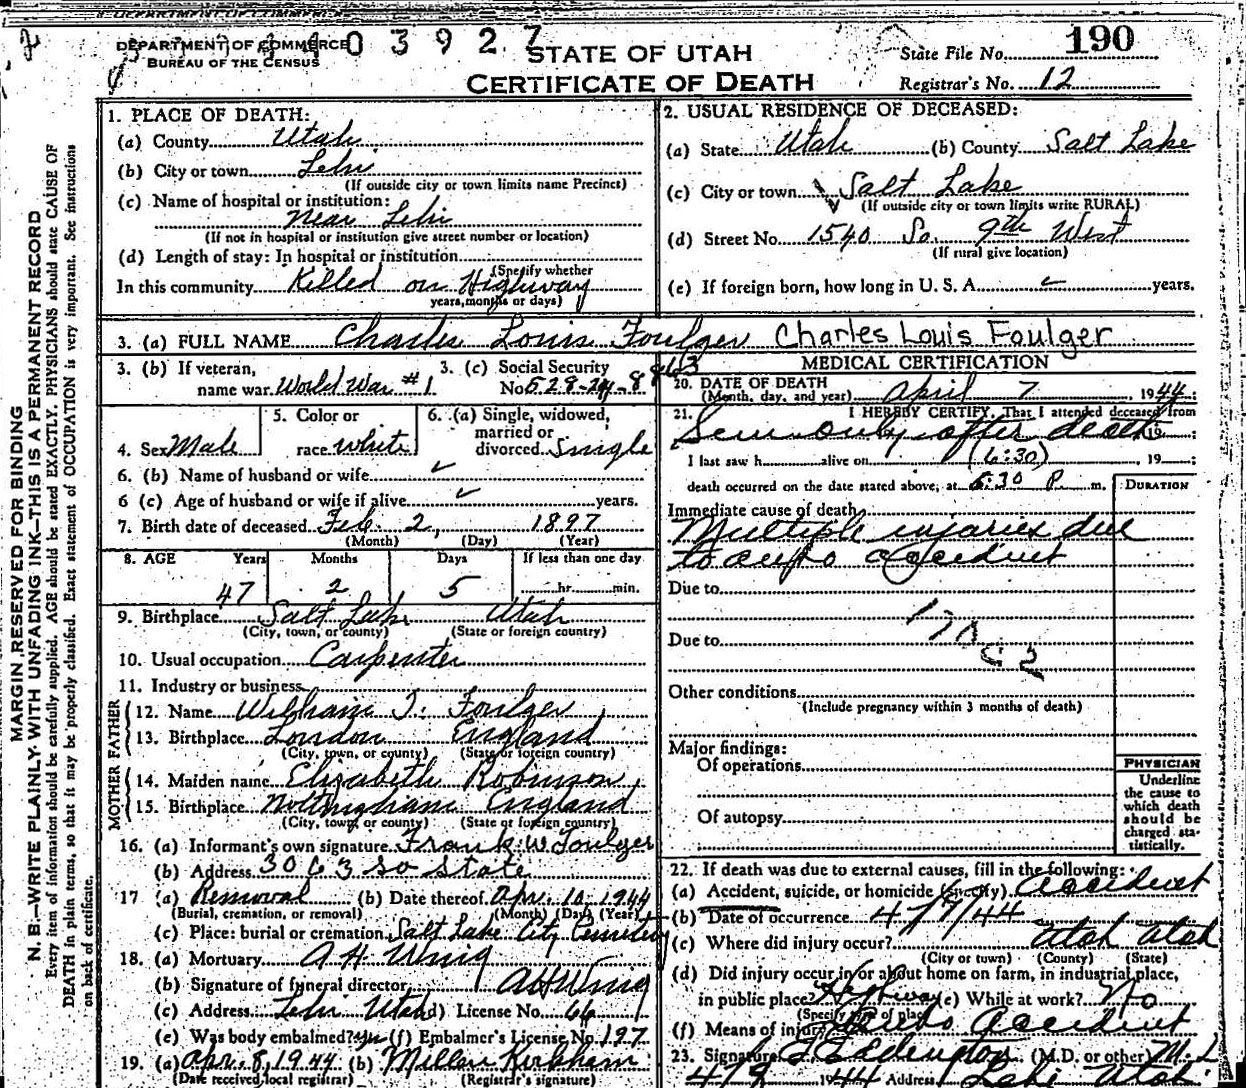 DEPARTMENT OF COMMERCE
BUREAU OF THE CENSUS
3 9 2 7
STATE OF UTAH
CERTIFICATE OF DEATH
State File No. 190
Registrar's No. 12
MARGIN RESERVED FOR BINDING
N. B.—WRITE PLAINLY WITH UNFADING INK—THIS IS A PERMANENT RECORD
Every item of information should be carefully supplied. AGE should be stated EXACTLY. PHYSICIANS should state CAUSE OF
DEATH in plain terms, so that it may be properly classified. Exact statement of OCCUPATION is very important. See instructions
on back of certificate.
1. PLACE OF DEATH:
(a) County Utah
(b) City or town Lehi
(If outside city or town limits name Precinct)
(c) Name of hospital or institution:
Near Lehi
(If not in hospital or institution give street number or location)
(d) Length of stay: In hospital or institution
(Specify whether
In this community Killed on Highway
years, months or days)
2. USUAL RESIDENCE OF DECEASED:
(a) State Utah (b) County Salt Lake
(c) City or town Salt Lake
(If outside city or town limits write RURAL)
(d) Street No. 1540 So. 9th West
(If rural give location)
(e) If foreign born, how long in U. S. A. years.
3. (a) FULL NAME Charles Louis Foulger Charles Louis Foulger
3. (b) If veteran,
name war World War #1
3. (c) Social Security
No. 528-24-8863
4. Sex Male
5. Color or
race White
6. (a) Single, widowed,
married or
divorced Single
6. (b) Name of husband or wife
6 (c) Age of husband or wife if alive years.
7. Birth date of deceased Feb. 2, 1897
(Month) (Day) (Year)
8. AGE Years Months Days If less than one day
47 2 5 hr. min.
9. Birthplace Salt Lake Utah
(City, town, or county) (State or foreign country)
10. Usual occupation Carpenter
11. Industry or business
FATHER
12. Name William T. Foulger
13. Birthplace London England
(City, town, or county) (State or foreign country)
MOTHER
14. Maiden name Elizabeth Robinson
15. Birthplace Nottingham England
(City, town, or county) (State or foreign country)
16. (a) Informant's own signature Frank W Foulger
(b) Address 3063 So State
17 (a) Removal (b) Date thereof Apr. 10, 1944
(Burial, cremation, or removal) (Month) (Day) (Year)
(c) Place: burial or cremation Salt Lake City Cemetery
18. (a) Mortuary A H Wing
(b) Signature of funeral director A H Wing
(c) Address Lehi Utah (d) License No. 66
(e) Was body embalmed? yes (f) Embalmer's License No. 197
19. (a) Apr. 8, 1944 (b) Millan Kirkham
(Date received local registrar) (Registrar's signature)
MEDICAL CERTIFICATION
20. DATE OF DEATH
(Month, day, and year) April 7, 1944;
21. I HEREBY CERTIFY, That I attended deceased from
Seen only after death 19
I last saw h alive on (6:30), 19 ;
death occurred on the date stated above, at 6:30 P. m.
DURATION
Immediate cause of death
Multiple injuries due
to auto accident
Due to
Due to
170
C 2
Other conditions
(Include pregnancy within 3 months of death)
Major findings:
Of operations
Of autopsy
PHYSICIAN
Underline
the cause to
which death
should be
charged sta-
tistically.
22. If death was due to external causes, fill in the following:
(a) Accident, suicide, or homicide (specify) Accident
(b) Date of occurrence 4/7/44
(c) Where did injury occur? Utah Utah
(City or town) (County) (State)
(d) Did injury occur in or about home on farm, in industrial place,
in public place? Highway (e) While at work? No
(Specify type of place)
(f) Means of injury Auto Accident
23. Signature Eddington (M.D. or other) M.D.
4/8 1944 Address Lehi Utah